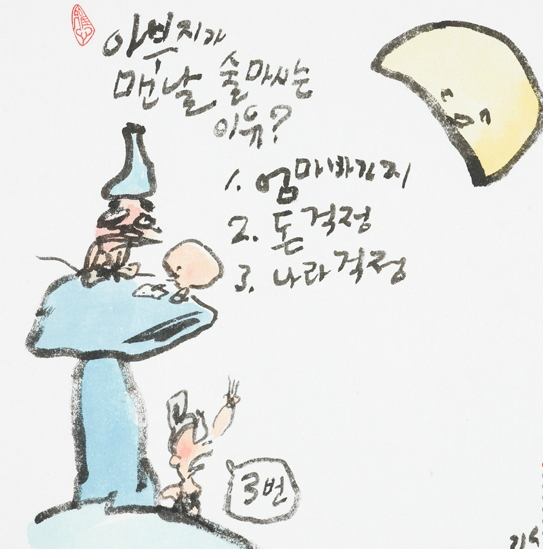 아부지가
맨날 술마시는
이유?
1. 엄마바가지
2. 돈걱정
3. 나라걱정
3번